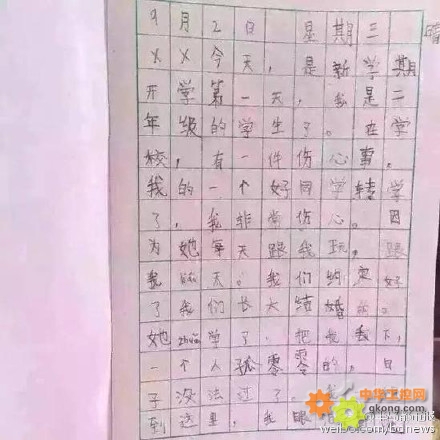 9月2日 星期三 晴
××今天,是新学期
开学第一天,我是二
年级的学生了。在学
校,有一件伤心事。
我的一个好同学转学
了,我非常伤心。因
为她每天跟我玩,跟
我聊天。我们约定好
了我们长大结婚的。
她zhuǎn学了,把我丢下,
一个人孤零零的,日
子没法过了。我
到这里,我眼
中华工控网
gkong.com
weibo.com/bdnews